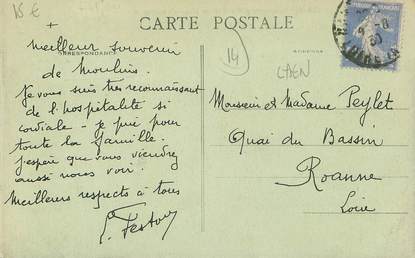 15 €
CARTE POSTALE
14
CAEN
CORRESPONDANCE
ADRESSE
Meilleur souvenir
de Moulins.
Je vous suis très reconnaissant
de l'hospitalité si
cordiale - je prie pour
toute la famille.
J'espère que vous viendrez
aussi nous voir.
Meilleurs respects à tous
Monsieur et Madame Peylet
Quai du Bassin
Roanne
Loire